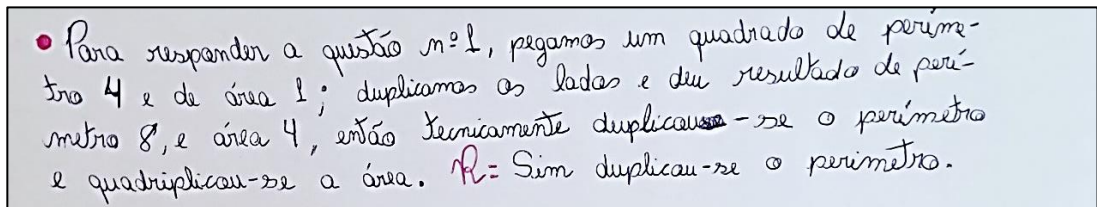 • Para responder a questão nº 1, pegamos um quadrado de períme-
tro 4 e de área 1; duplicamos os lados e deu resultado de perí-
metro 8, e área 4, então tecnicamente duplicou-se o perímetro
e quadriplicou-se a área. R= Sim duplicou-se o perímetro.